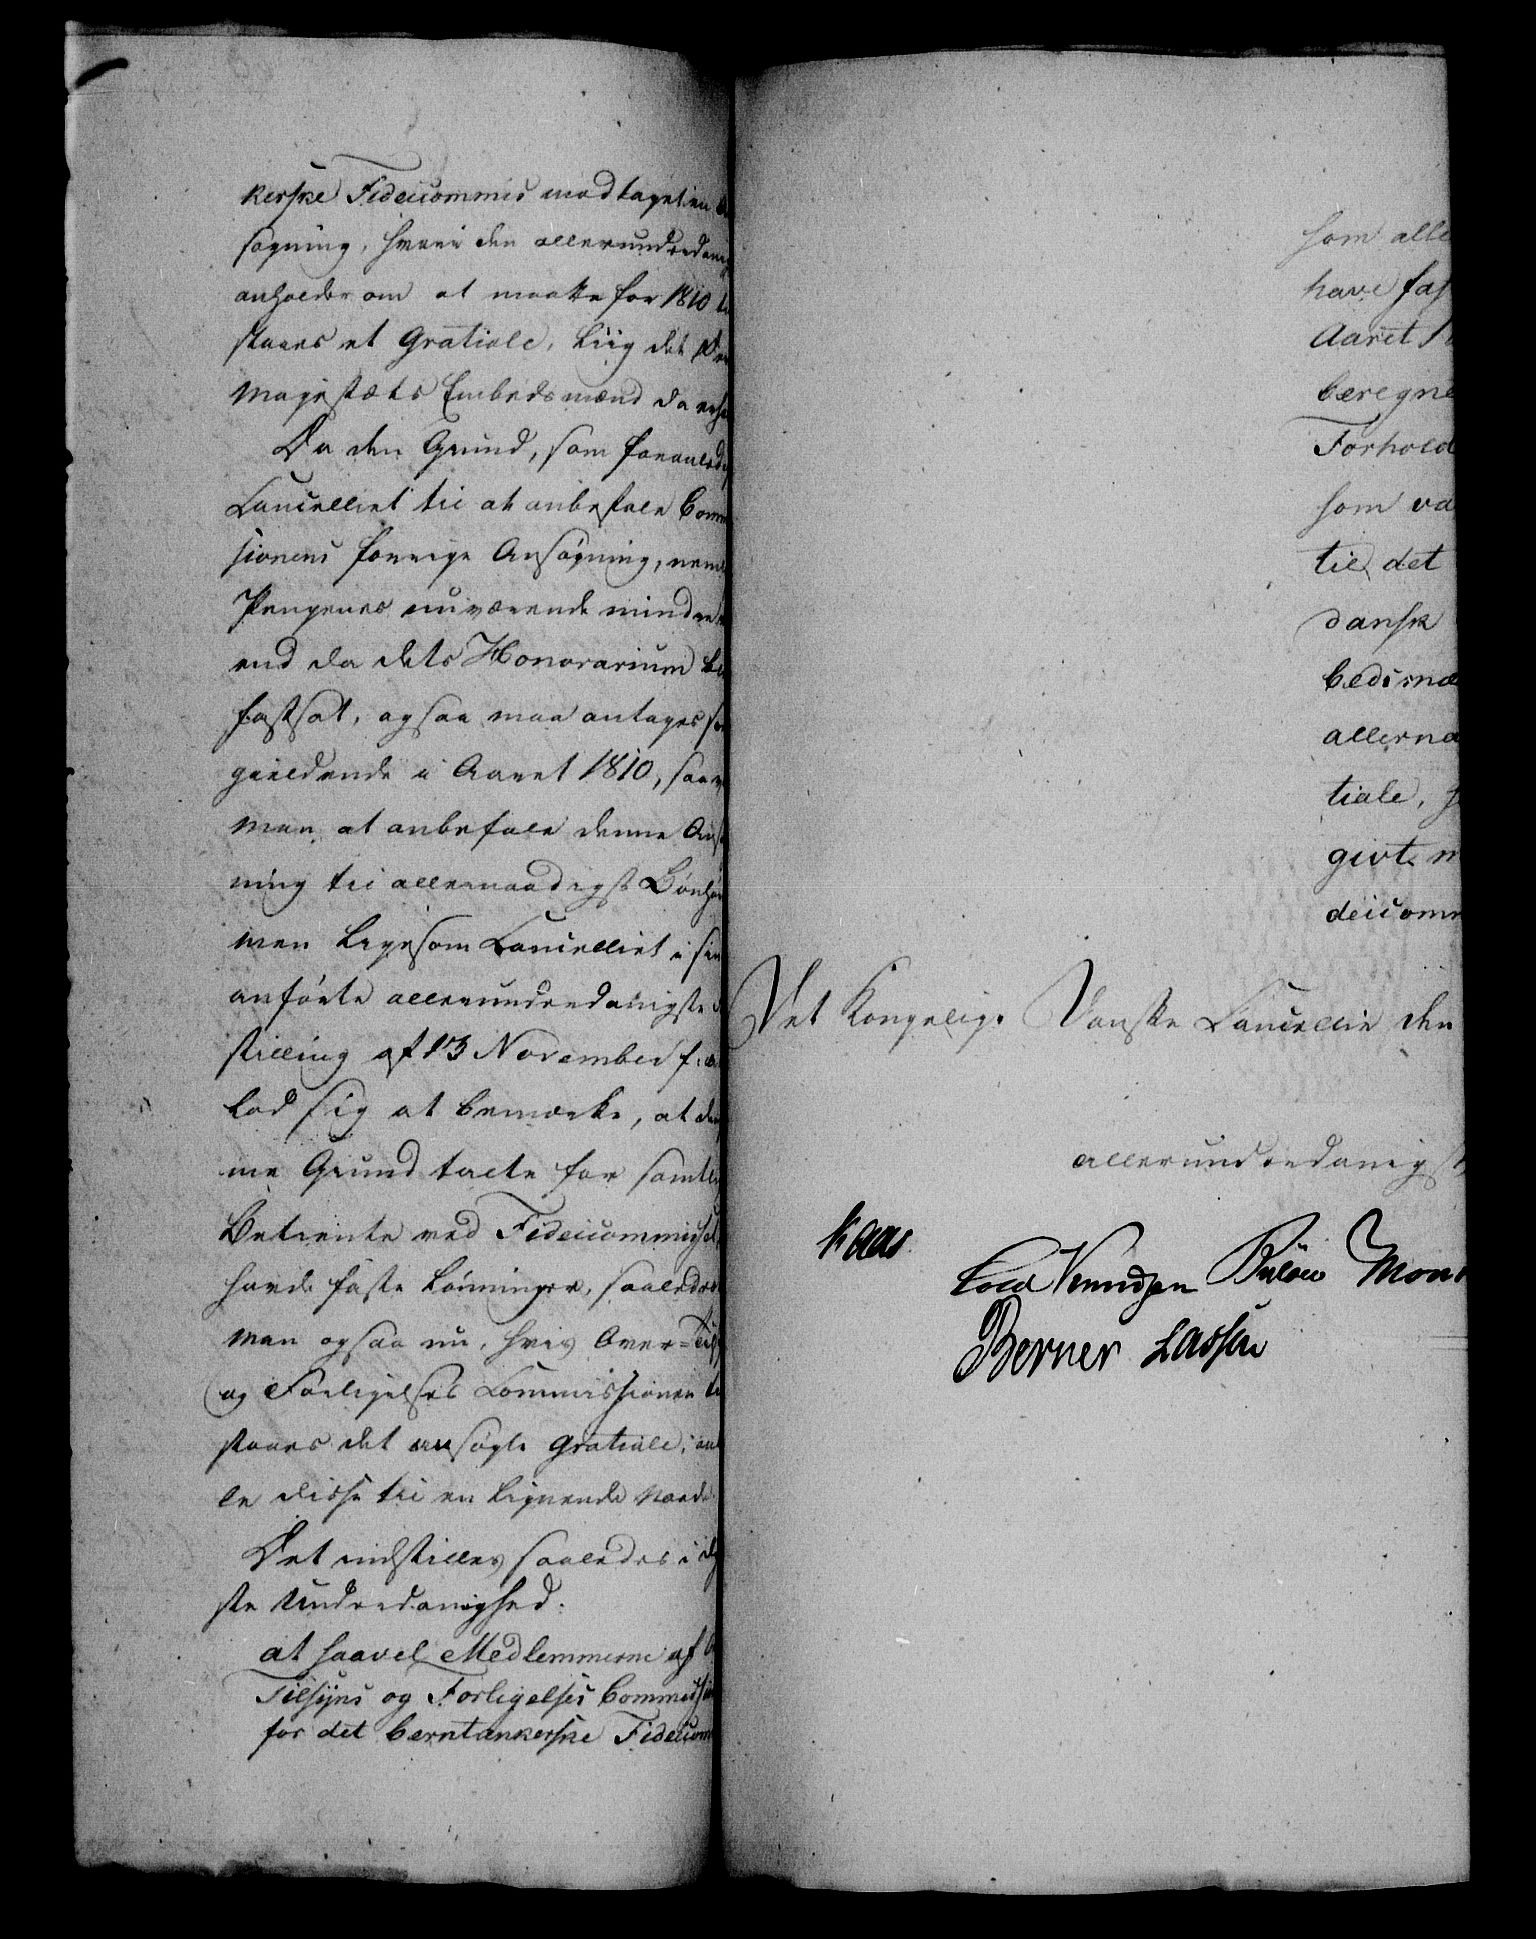 kerske Fideicommis modtaget en
søgning, hvori den allerunderdanig
anholder om at maatte for 1810
staaes et Gratiale, liig det
Majestæts Embedsmænd da
Da den Grund, som foranled
Cancelliet til at anbefale Comm
sionens forrige Ansøgning, neml
Pengenes nuværende mindre
end da dets Honorarium
fastsat, ogsaa maa antages
gieldende i Aaret 1810, saa
man at anbefale denne Ansø
ning til allernaadigst Bønhør
men ligesom Cancelliet i sin
anførte allerunderdanigste
stilling af 13 November f:
lod sig at bemærke, at den
me Grund talte for samtl
Betiente ved Fideicommisset
havde faste Lønninger, saaledes
man ogsaa nu, hvis Over-
og Forligelses Commissionen
staaes det ansøgte Gratiale,
le disse til en lignende Naade.
Det indstilles saaledes i
ste Underdanighed:
at saavel Medlemmerne af
Tilsÿns og Forligelses Commiss
for det berntankerske Fideicom
som alle
have fas
Aaret
beregne
Forhold
som va
til det
dansk
bedsmæ
allerna
tiale,
givt
deicomm
Det Kongelige Danske Cancellie den
allerunderdanigst
Kaas
Cold Knudsen Bülow Mon
Berner Lassen